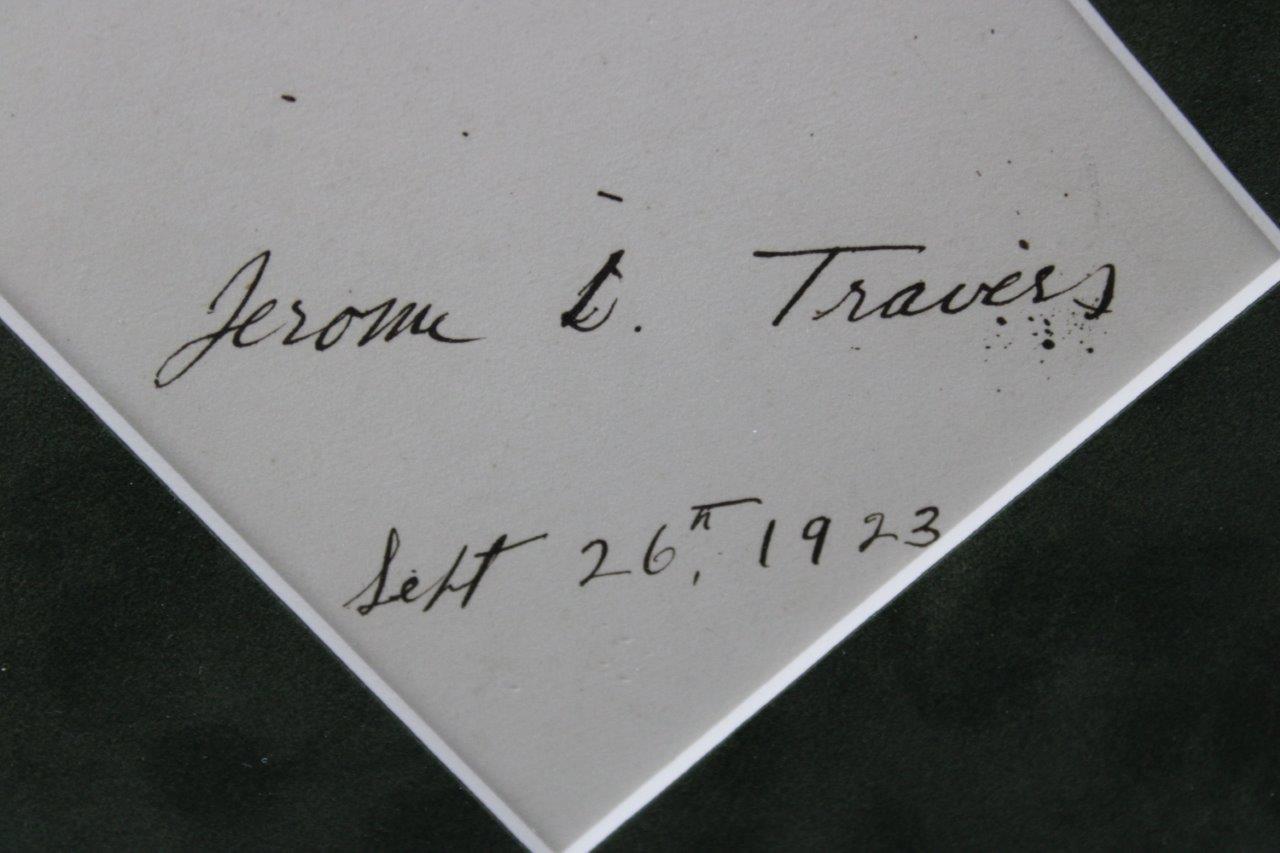 Jerome D. Travers
Sept 26th, 1923